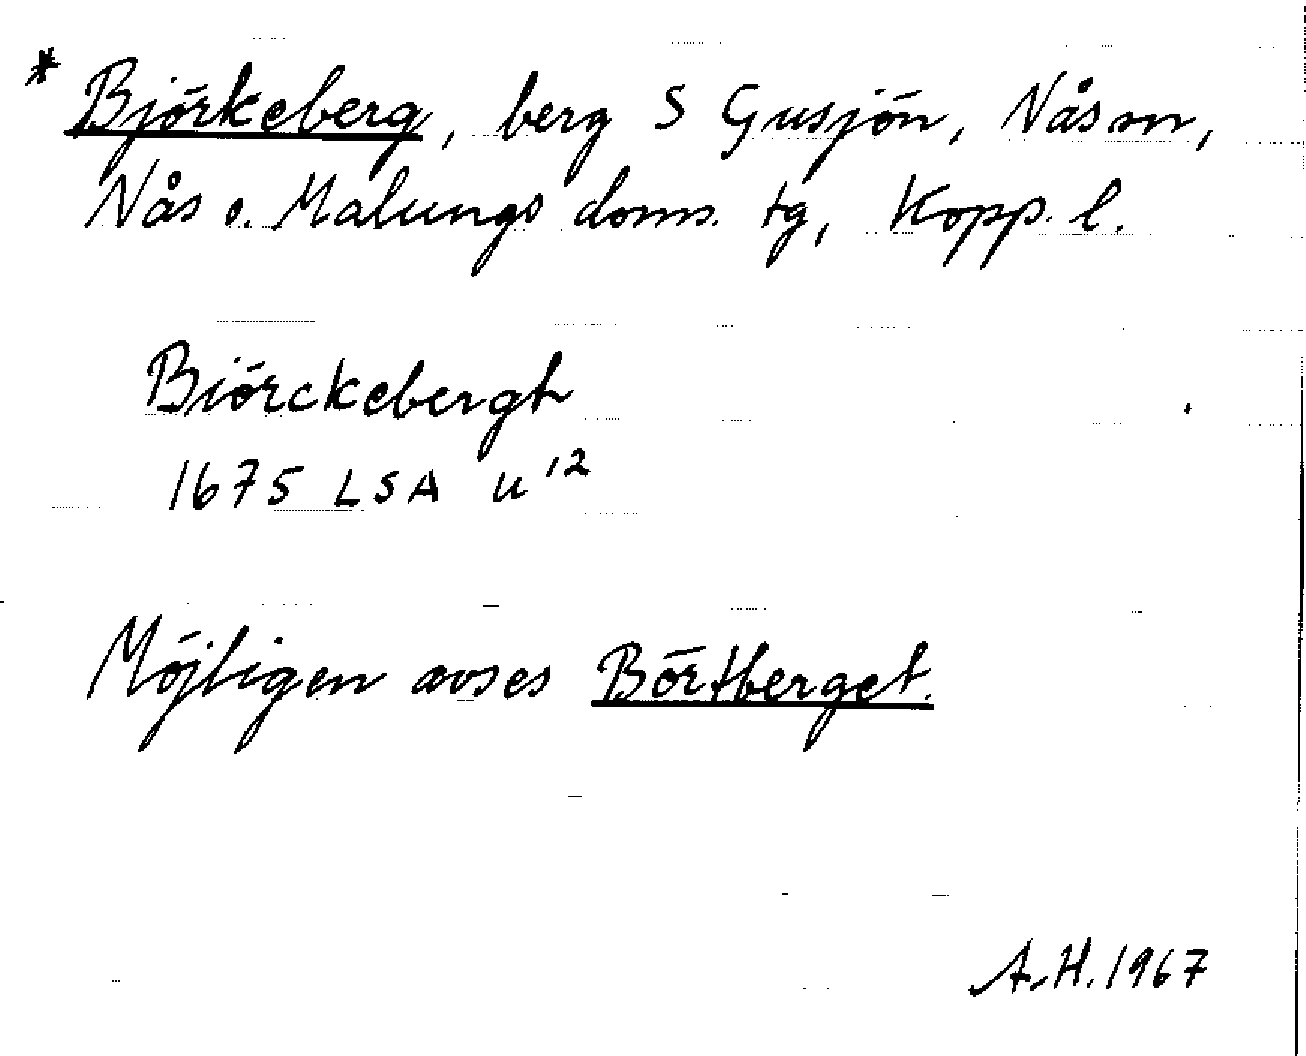 * Björkeberg, berg S Gusjön, Nås sn,
Nås o. Malungs doms. tg, Kopp. l.
Biörckebergh
1675 LSA U 12
Möjligen avses Börtberget.
A.H. 1967